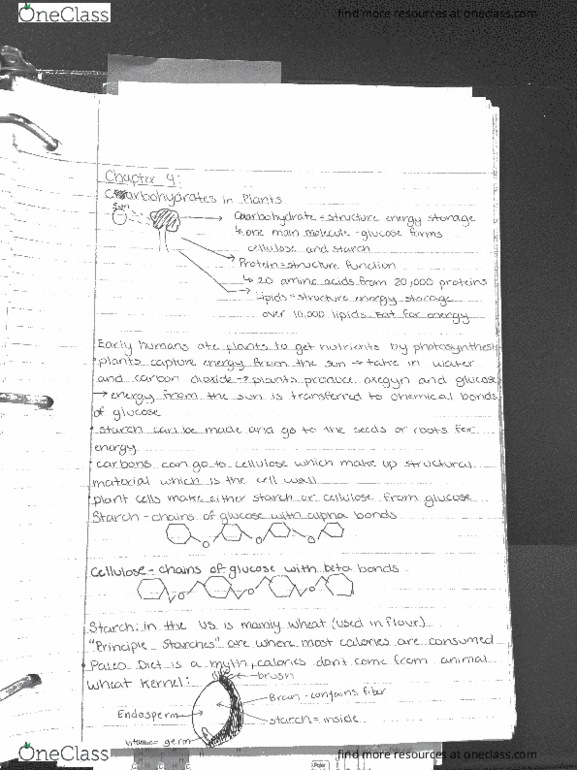 OneClass
find more resources at oneclass.com
Chapter 4:
Carbohydrates in Plants
sun
Carbohydrate = structure energy storage
↳ one main molecule - glucose forms
cellulose and starch
Protein = structure function
↳ 20 amino acids from 20,000 proteins
Lipids = structure energy storage
over 10,000 lipids eat for energy
Early humans ate plants to get nutrients by photosynthesis
plants capture energy from the sun → take in water
and carbon dioxide → plants produce oxegyn and glucose
→ energy from the sun is transferred to chemical bonds
of glucose
starch can be made and go to the seeds or roots for
energy
carbons can go to cellulose which make up structural
material which is the cell wall
plant cells make either starch or cellulose from glucose
Starch - chains of glucose with alpha bonds
O O O
Cellulose - chains of glucose with beta bonds
O O O
Starch: in the US is mainly wheat (used in flour)
"Principle Starches" are where most calories are consumed
Paleo Diet is a myth, calories dont come from animal
wheat kernel:
brush
Bran - contains fiber
Endosperm
starch = inside
germ
OneClass
find more resources at oneclass.com